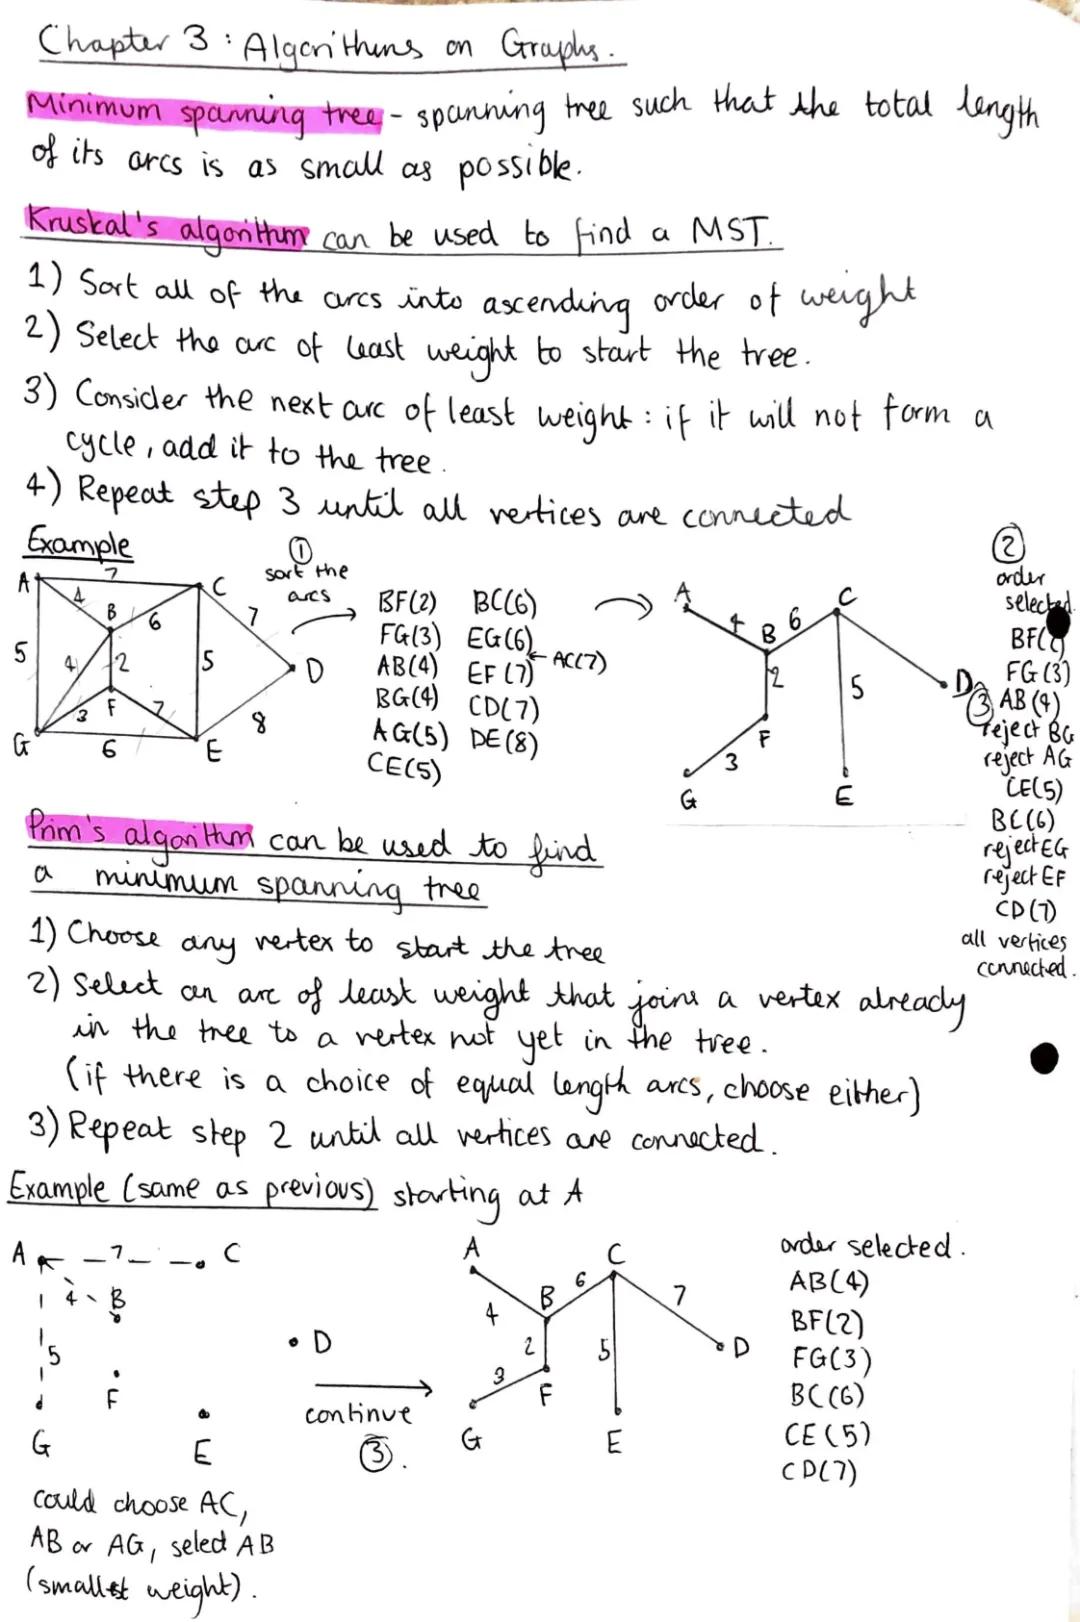 Chapter 3 : Algorithms on Graphs.
Minimum spanning tree - spanning tree such that the total length
of its arcs is as small as possible.
Kruskal's algorithm can be used to find a MST.
1) Sort all of the arcs into ascending order of weight
2) Select the arc of least weight to start the tree.
3) Consider the next arc of least weight : if it will not form a
cycle, add it to the tree.
4) Repeat step 3 until all vertices are connected
Example
A 7 C
4 B 6 7
5 4 2 5 D
3 F 7 8
G 6 E
①
sort the
arcs
BF(2) BC(6)
FG(3) EG(6)
AB(4) EF(7) ← AC(7)
BG(4) CD(7)
AG(5) DE(8)
CE(5)
A C
4 B 6
2 5 D
F
3
G E
②
order
selected.
BF(
FG(3)
③ AB(4)
reject BG
reject AG
CE(5)
BC(6)
reject EG
reject EF
CD(7)
all vertices
connected.
Prim's algorithm can be used to find
a minimum spanning tree
1) Choose any vertex to start the tree
2) Select an arc of least weight that joins a vertex already
in the tree to a vertex not yet in the tree.
(if there is a choice of equal length arcs, choose either)
3) Repeat step 2 until all vertices are connected.
Example (same as previous) starting at A
A 7 C
4 B
5 D
F
G E
could choose AC,
AB or AG, select AB
(smallest weight).
continue
③.
A C
4 B 6 7
2 5 D
3 F
G E
order selected.
AB(4)
BF(2)
FG(3)
BC(6)
CE(5)
CD(7)